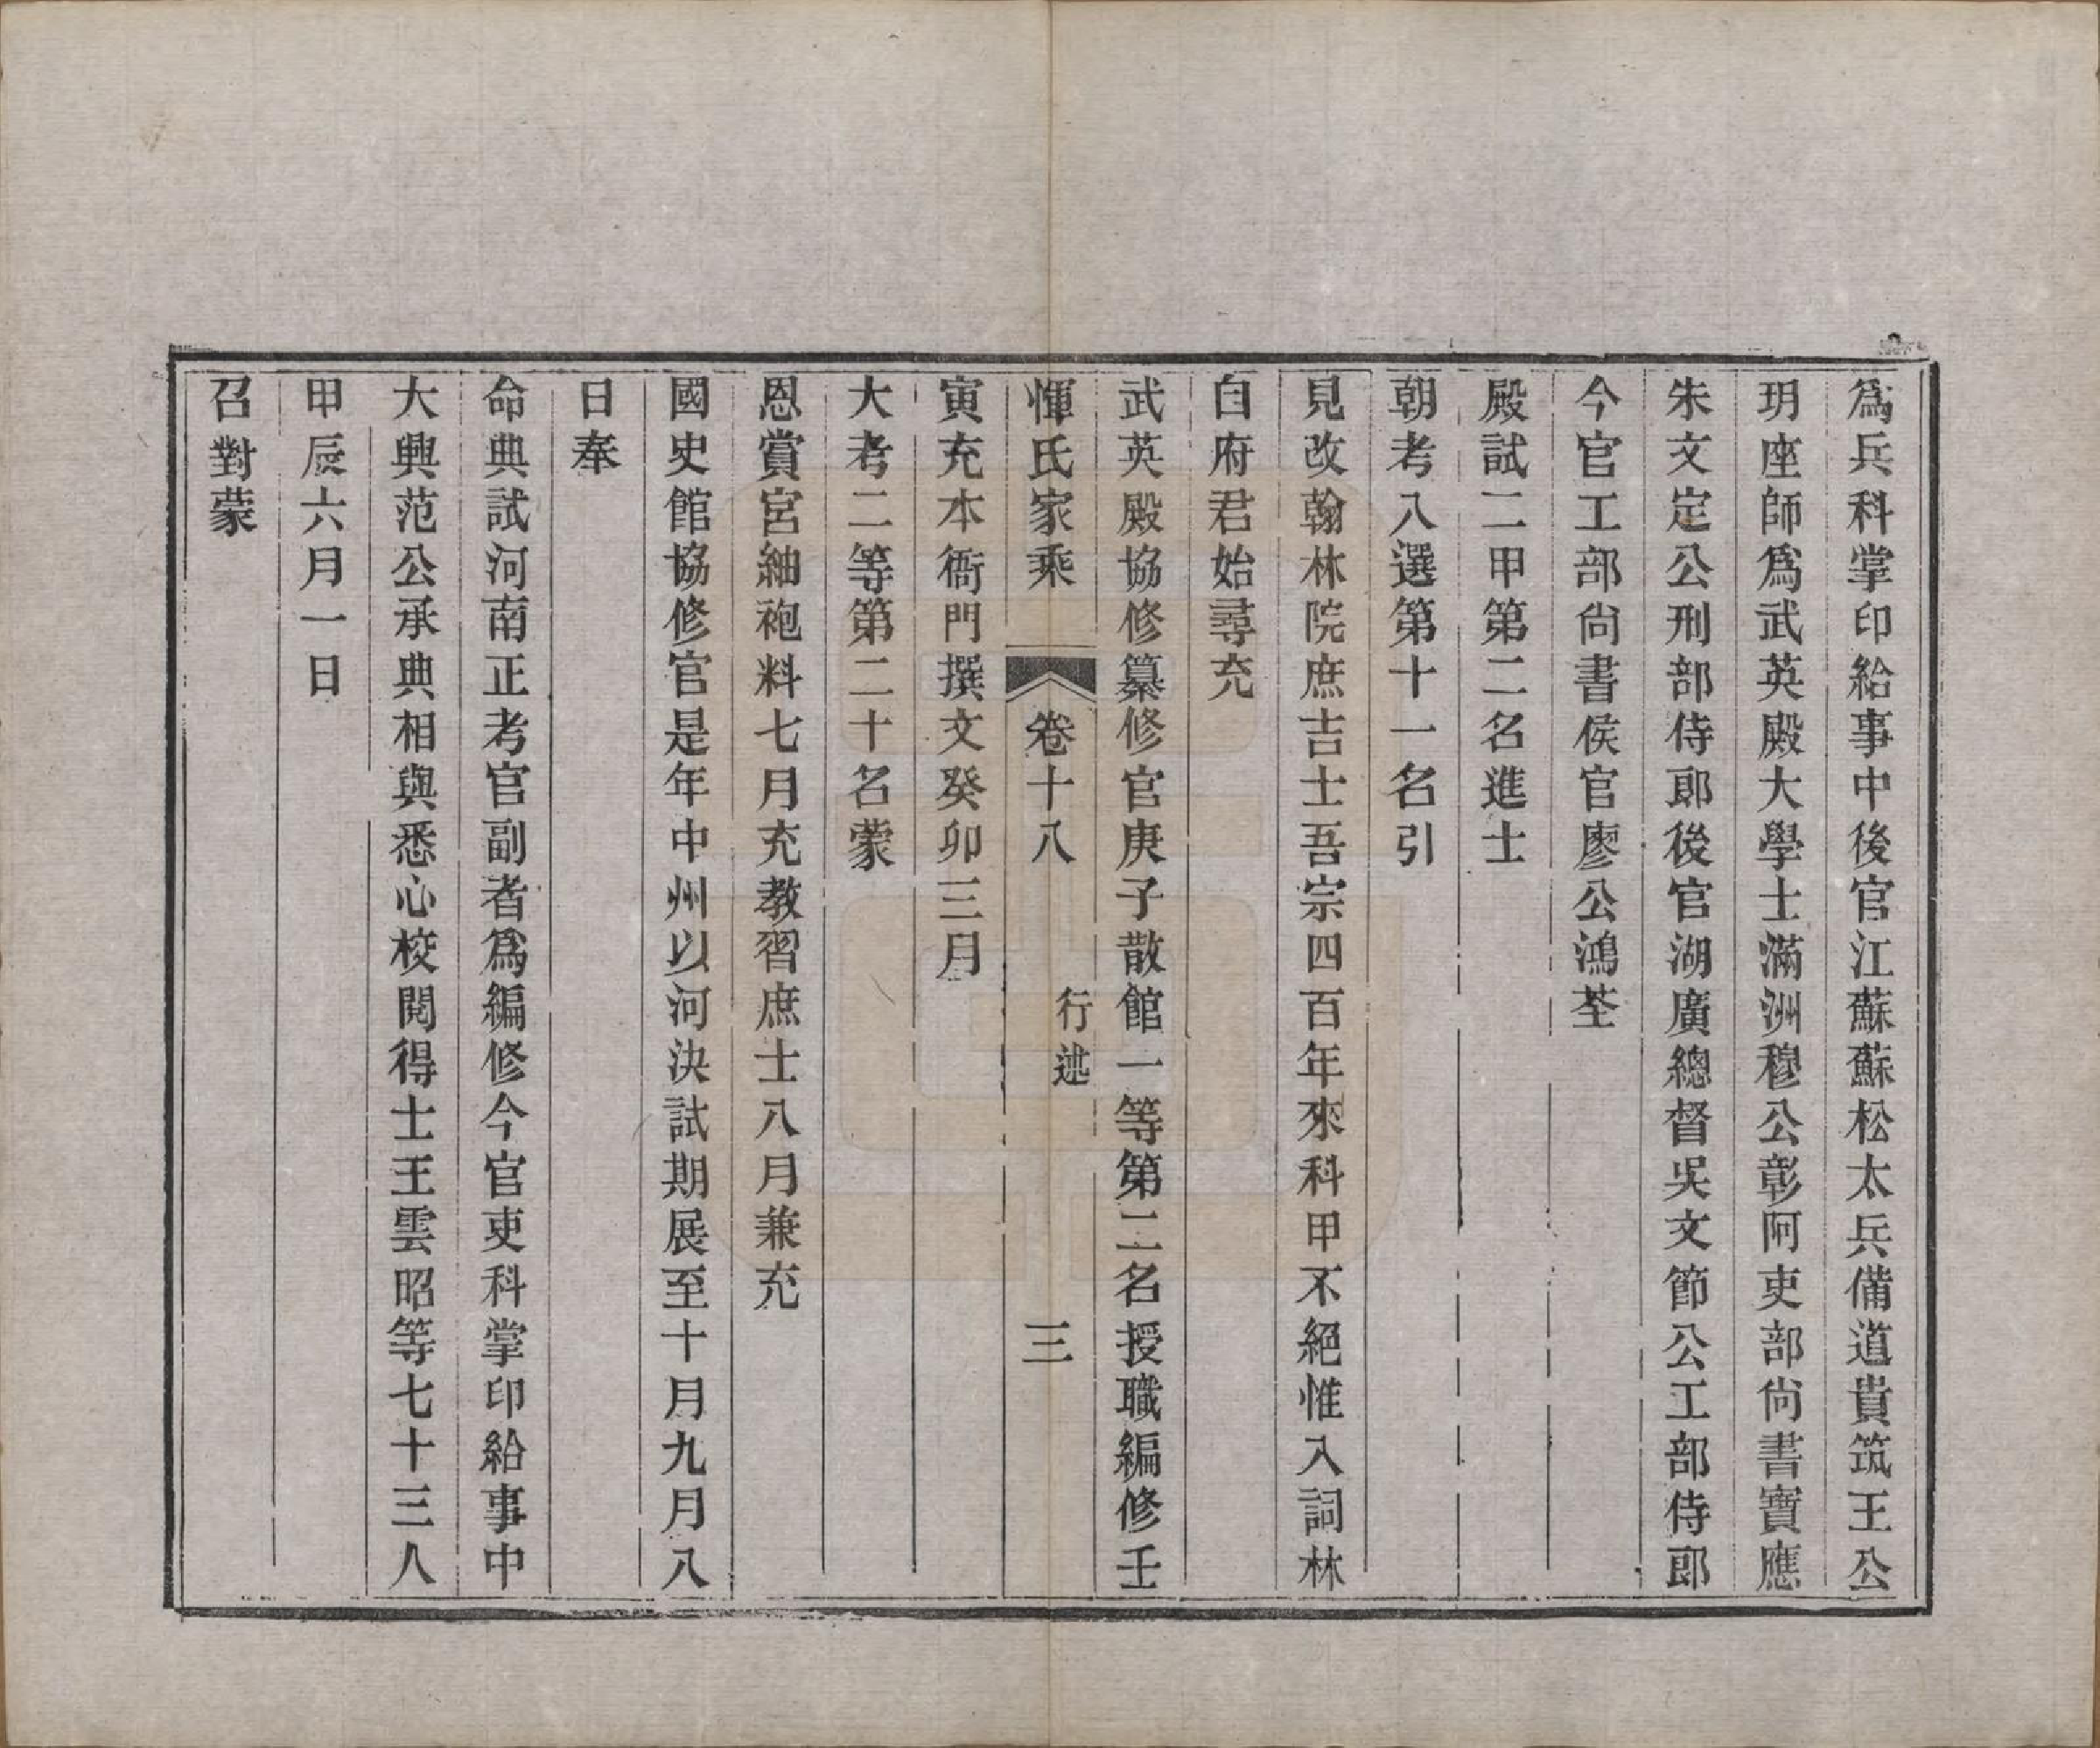 爲兵科掌印給事中後官江蘇蘇松太兵備道貴筑王公
玥座師爲武英殿大學士滿洲穆公彰阿吏部尙書寶應
朱文定公刑部侍郎後官湖廣總督吳文節公工部侍郎
今官工部尙書侯官廖公鴻荃
殿試二甲第二名進士
朝考入選第十一名引
見改翰林院庶吉士吾宗四百年來科甲不絕惟入詞林
自府君始尋充
武英殿協修纂修官庚子散館一等第二名授職編修壬
惲氏家乘 卷十八 行述 三
寅充本衙門撰文癸卯三月
大考二等第二十名蒙
恩賞宮紬袍料七月充教習庶士八月兼充
國史館協修官是年中州以河決試期展至十月九月八
日奉
命典試河南正考官副者爲編修今官吏科掌印給事中
大興范公承典相與悉心校閱得士王雲昭等七十三人
甲辰六月一日
召對蒙